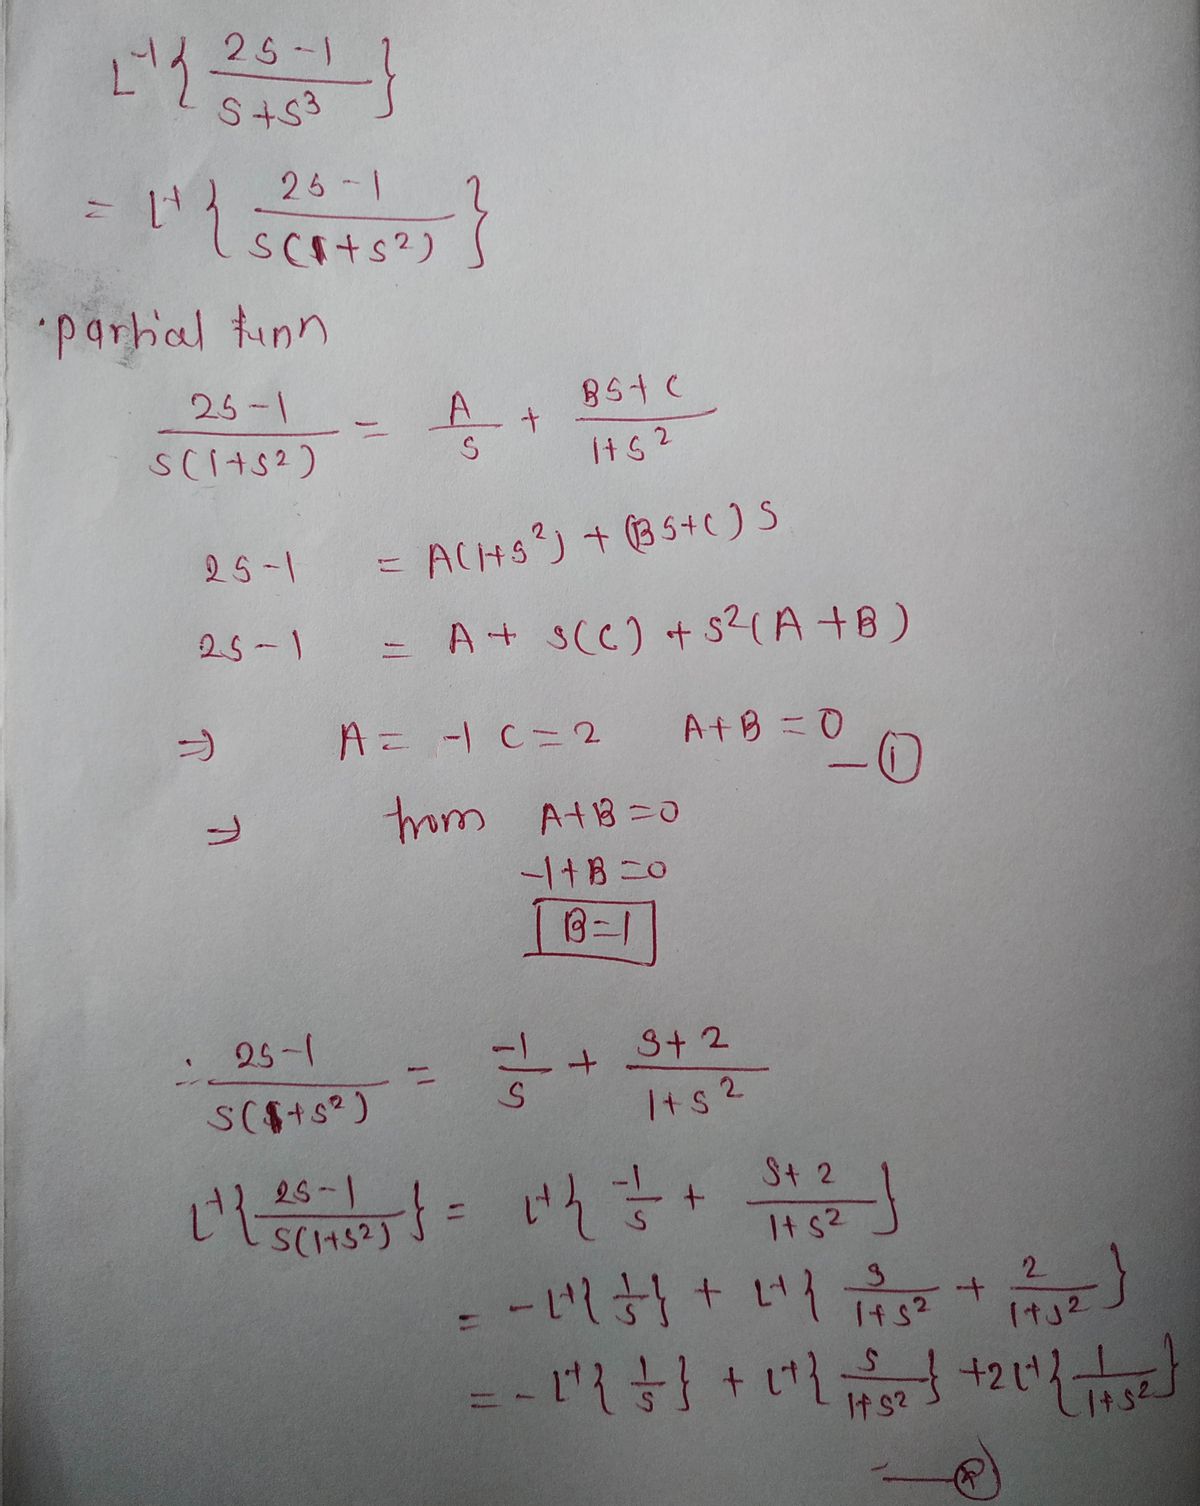 L⁻¹{ (2s-1)/(s+s³) }
= L⁻¹{ (2s-1)/(s(1+s²)) }
·partial funn
(2s-1)/(s(1+s²)) = A/s + (Bs+c)/(1+s²)
2s-1 = A(1+s²) + (Bs+c)s
2s-1 = A + s(c) + s²(A+B)
⇒ A = -1 c=2 A+B=0 —①
⇒ from A+B=0
-1+B=0
B=1
∴ (2s-1)/(s(1+s²)) = -1/s + (s+2)/(1+s²)
L⁻¹{ (2s-1)/(s(1+s²)) } = L⁻¹{ -1/s + (s+2)/(1+s²) }
= -L⁻¹{ 1/s } + L⁻¹{ s/(1+s²) + 2/(1+s²) }
= -L⁻¹{ 1/s } + L⁻¹{ s/(1+s²) } +2L⁻¹{ 1/(1+s²) }